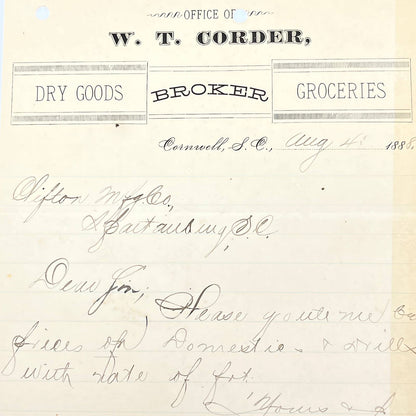 OFFICE OF
W. T. CORDER,
DRY GOODS BROKER GROCERIES
Cornwell, S. C., Aug 4 1888.
Clifton Mfg Co,
Spartanburg, S.C.
Dear Sir; Please quote me
prices on Domestics & Drills
with rate of frt.
Yours &